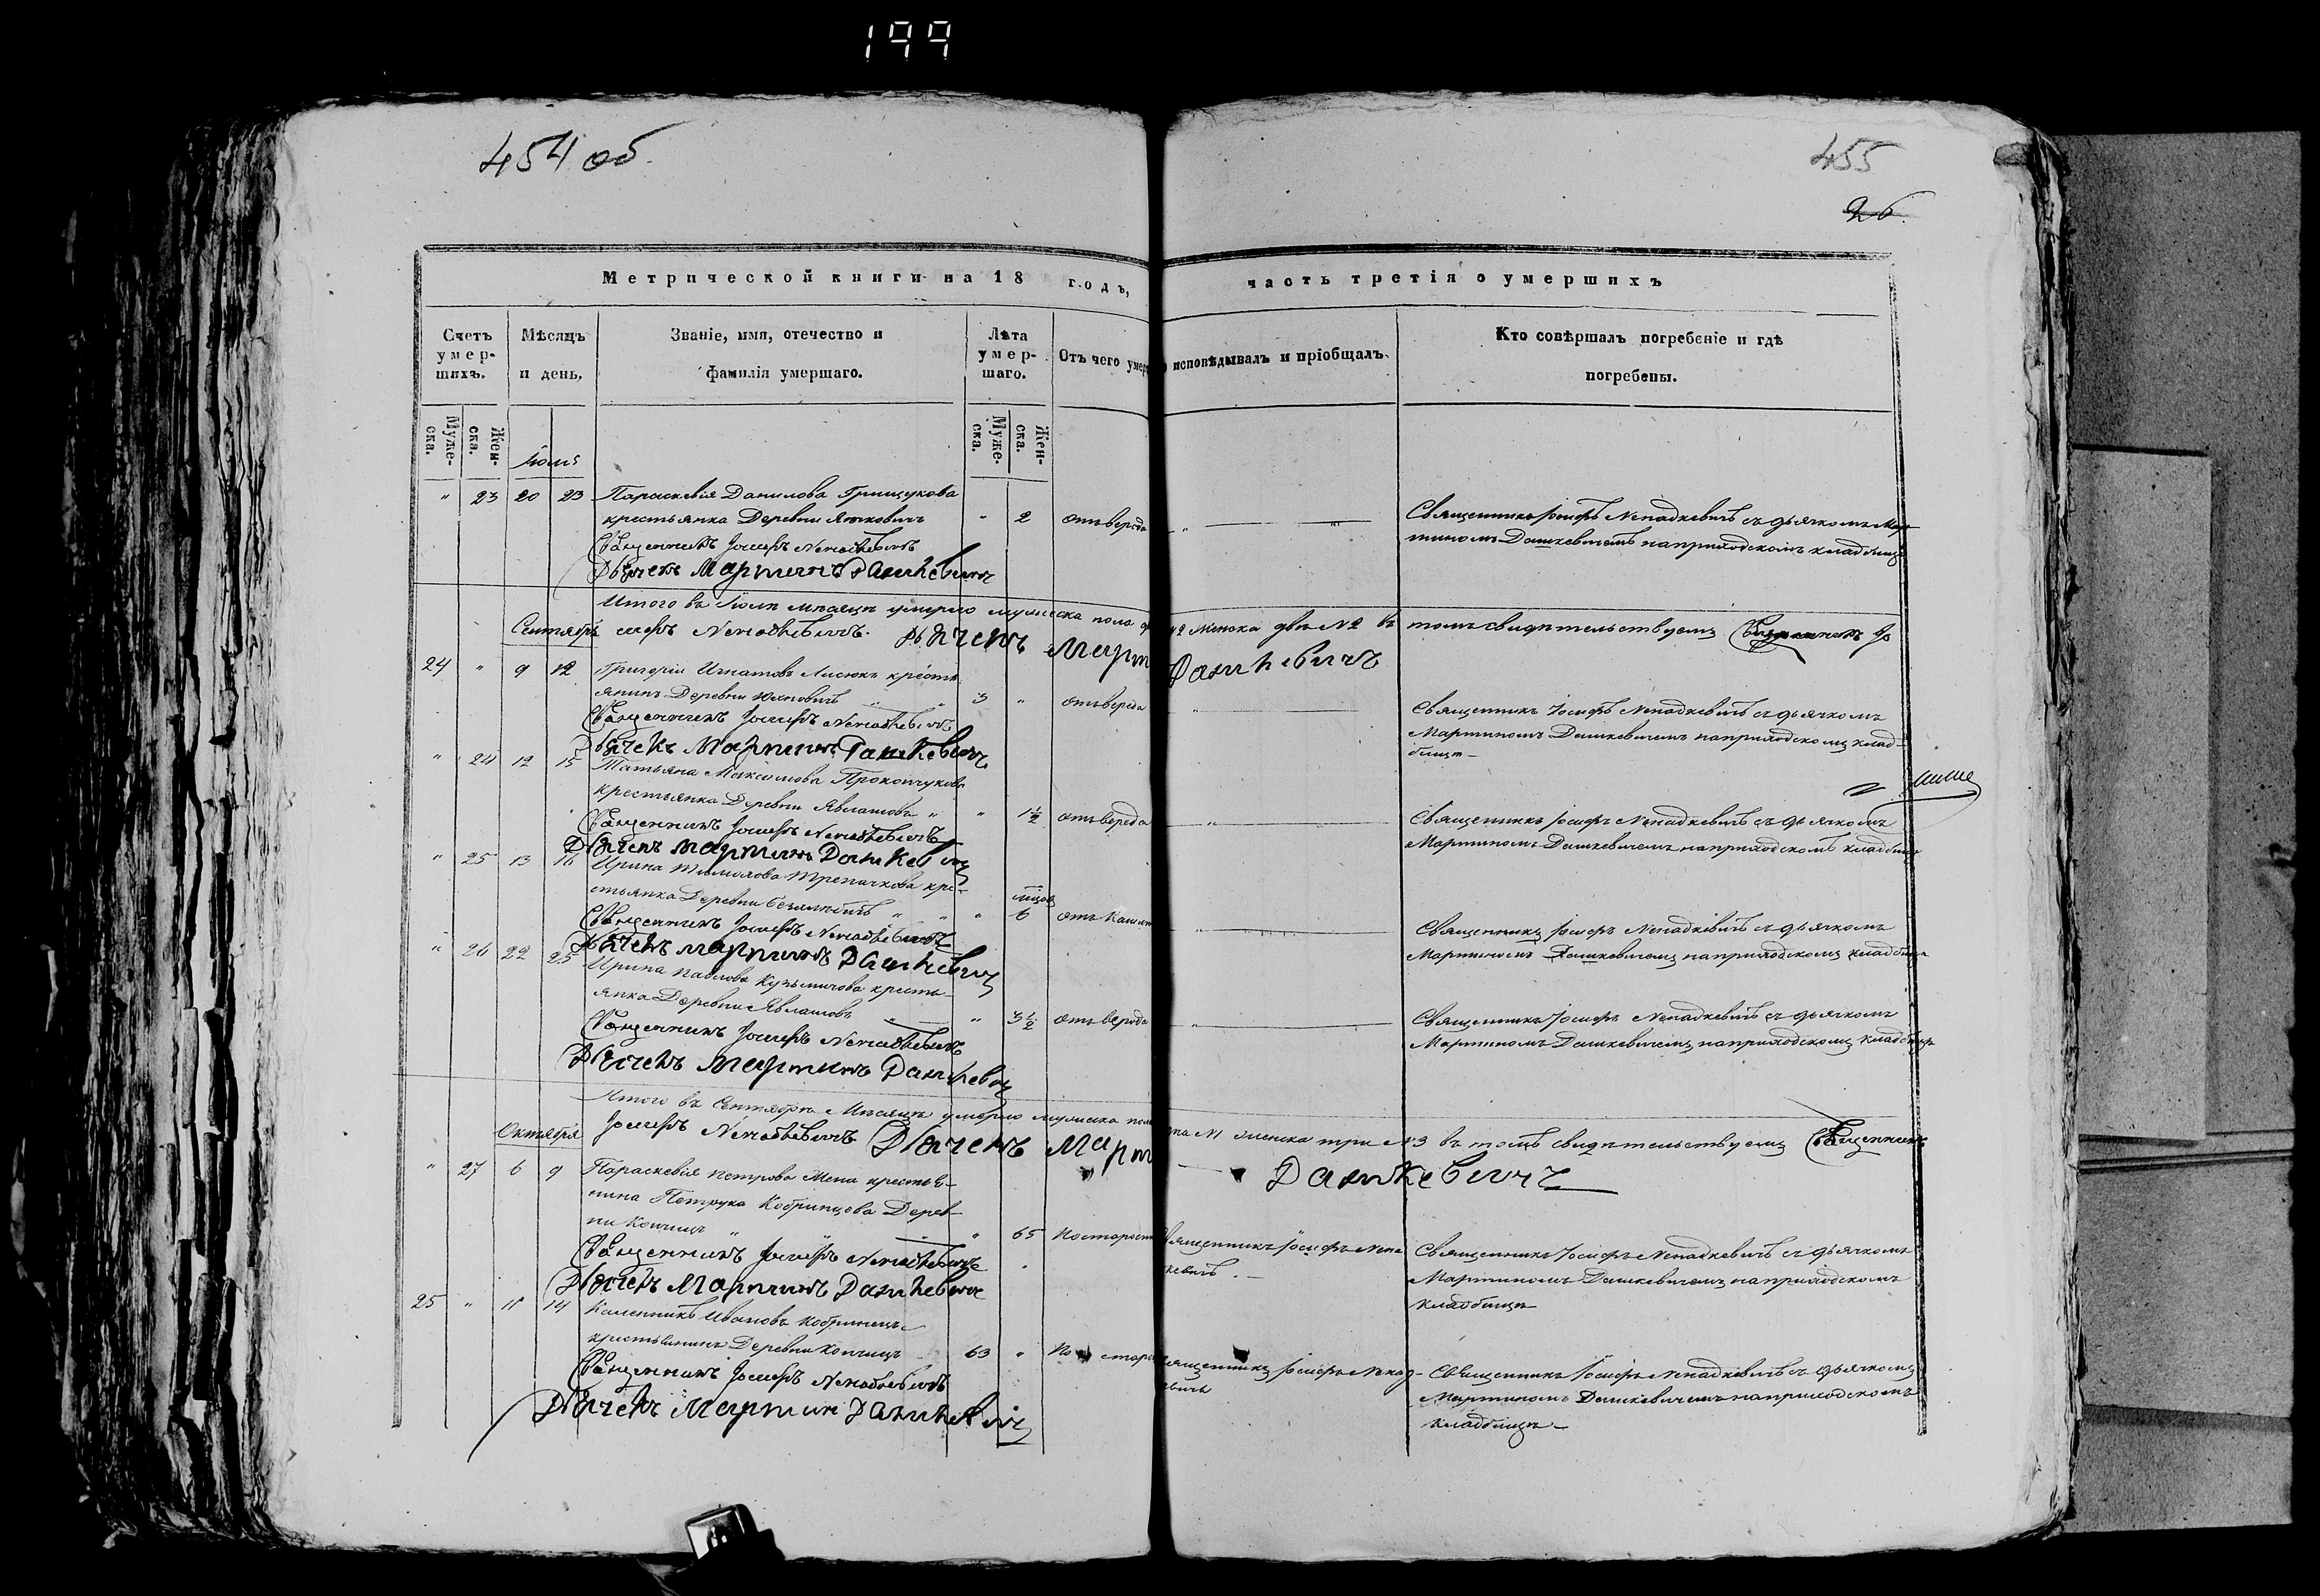 199
454 об.
455
26
Метрической книги на 18 годъ,
часть третія о умершихъ
Счетъ умер-шихъ.
Мѣсяцъ и день.
Званіе, имя, отечество и фамилія умершаго.
Лѣта умер-шаго.
Отъ чего умер
исповѣдывалъ и пріобщалъ.
Кто совѣршалъ погребеніе и гдѣ погребены.
Муже-ска.
Жен-ска.
Муже-ска.
Жен-ска.
Іюля
" 23 20 23 Параскевія Данилова Грицукова
крестьянка Деревни " 2 отъ вереда
Священникъ Іосифъ Ненадкевичъ съ дьячкомъ Мар
тиномъ Дашкевичемъ наприходскомъ кладбищѣ
Священникъ Іосифъ Ненадкевичъ
Дьячекъ Мартинъ Дашкевичъ
Итого въ Іюлѣ мѣсяцѣ умерло мужеска пола
№2 женска двѣ №2 въ томъ свидѣтельствуемъ Священникъ Іо
Сентябрь
сифъ Ненадкевичъ. Дьячекъ Март
Дашкевичъ
24 " 9 12 Григорій Игнатовъ Лисюкъ кресть
янинъ Деревни 3 " отъ вереда
Священникъ Іосифъ Ненадкевичъ съ дьячкомъ
Мартиномъ Дашкевичемъ наприходскомъ клад-
бищѣ
Священникъ Іосифъ Ненадкевичъ
Дьячекъ Мартинъ Дашкевичъ
" 24 12 15 Татьяна Максимова Прокопчукова
крестьянка Деревни " 1½ отъ вереда
Священникъ Іосифъ Ненадкевичъ съ дьячкомъ
Мартиномъ Дашкевичемъ наприходскомъ кладбищѣ
Священникъ Іосифъ Ненадкевичъ
Дьячекъ Мартинъ Дашкевичъ
" 25 13 16 Ирина Тимохова Трепачкова кре-
стьянка Деревни " 6 отъ Кашля
Священникъ Іосифъ Ненадкевичъ съ дьячкомъ
Мартиномъ Дашкевичемъ наприходскомъ кладбищѣ
Священникъ Іосифъ Ненадкевичъ
Дьячекъ Мартинъ Дашкевичъ
" 26 22 25 Ирина Павлова Кузьмичова кресть-
янка Деревни " 3½ отъ вереда
Священникъ Іосифъ Ненадкевичъ съ дьячкомъ
Мартиномъ Дашкевичемъ наприходскомъ кладбищѣ
Священникъ Іосифъ Ненадкевичъ
Дьячекъ Мартинъ Дашкевичъ
Итого въ Сентябрѣ Мѣсяцѣ умерло мужеска пола
№1 женска три №3 въ томъ свидѣтельствуемъ Священникъ
Октября
Іосифъ Ненадкевичъ Дьячекъ Март
Дашкевичъ
" 27 6 9 Параскевія Петрова Жена крестья-
нина Кобринцова Дерев-
ни Кончицъ " 65 По старости
Священникъ Іосифъ Нена
кевичъ.
Священникъ Іосифъ Ненадкевичъ съ дьячкомъ
Мартиномъ Дашкевичемъ наприходскомъ
кладбищѣ
Священникъ Іосифъ Ненадкевичъ
Дьячекъ Мартинъ Дашкевичъ
25 " 11 14 Каленникъ Ивановъ Кобринецъ
крестьянинъ Деревни Кончицъ 63 " По старо
вященникъ Іосифъ Ненад-
кевичъ
Священникъ Іосифъ Ненадкевичъ съ дьячкомъ
Мартиномъ Дашкевичемъ наприходскомъ
кладбищѣ
Священникъ Іосифъ Ненадкевичъ
Дьячекъ Мартин Дашкевичъ